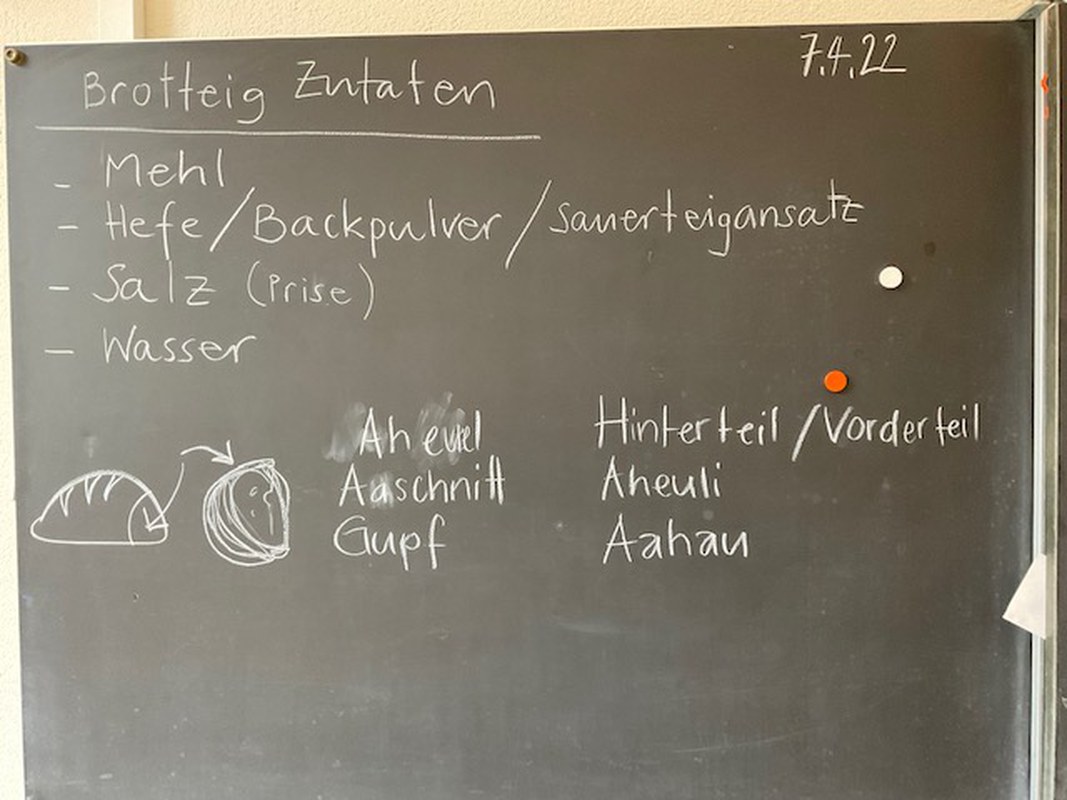 7.4.22
Brotteig Zutaten
- Mehl
- Hefe/Backpulver/Sauerteigansatz
- Salz (Prise)
- Wasser
Hinterteil/Vorderteil
Aaschnitt Aheuli
Gupf Aahau